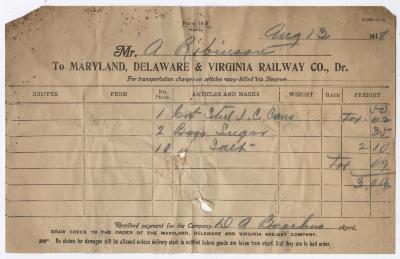 Form 19-B
Aug 13 1918
Mr. A Robinson
To MARYLAND, DELAWARE & VIRGINIA RAILWAY CO., Dr.
For transportation charges on articles way-billed via Steamer
SHIPPER FROM No. Pkgs. ARTICLES AND MARKS WEIGHT RATE FREIGHT
1 Crt Steel I. C. Cans
Tax 02
2 Bags Sugar 35
10 " Salt 2 10
Tax 07
Received payment for the Company, Agent.
DRAW CHECK TO THE ORDER OF THE MARYLAND, DELAWARE AND VIRGINIA RAILWAY COMPANY.
No claims for damages will be allowed unless delivery clerk is notified before goods are taken from wharf, that they are in bad order.